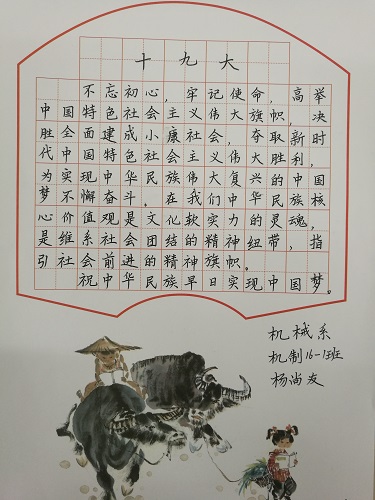 十九大
不忘初心，牢记使命，高举
中国特色社会主义伟大旗帜，决
胜全面建成小康社会，夺取新时
代中国特色社会主义伟大胜利，
为实现中华民族伟大复兴的中国
梦不懈奋斗。在我们中华民族核
心价值观是文化软实力的灵魂，
是维系社会团结的精神纽带，指
引社会前进的精神旗帜。
祝中华民族早日实现中国梦。
机械系
机制16-1班
杨尚友